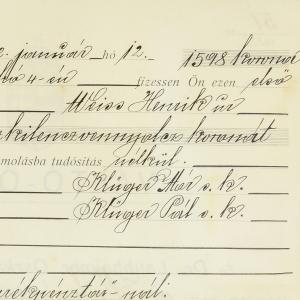 január hó 12. 1598 korona
4-én fizessen Ön ezen első
Weiss Henrik úr
kilenczvennyolcz koronát
molásba tudósítás nélkül.
Klüger Mór s. k.
Klüger Pál s. k.